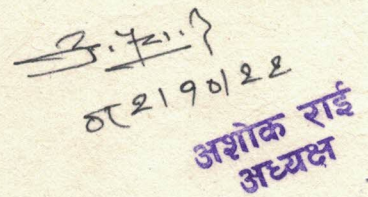 ०८२।१०।२२
अशोक राई
अध्यक्ष